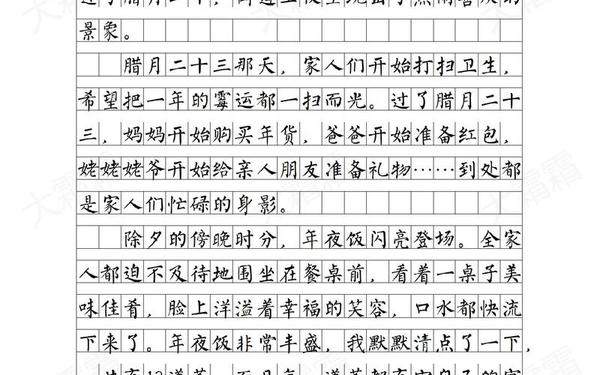 景象。
腊月二十三那天，家人们开始打扫卫生，
希望把一年的霉运都一扫而光。过了腊月二十
三，妈妈开始购买年货，爸爸开始准备红包，
姥姥姥爷开始给亲人朋友准备礼物……到处都
是家人们忙碌的身影。
除夕的傍晚时分，年夜饭闪亮登场。全家
人都迫不及待地围坐在餐桌前，看着一桌子美
味佳肴，脸上洋溢着幸福的笑容，口水都快流
下来了。年夜饭非常丰盛，我默默清点了一下，